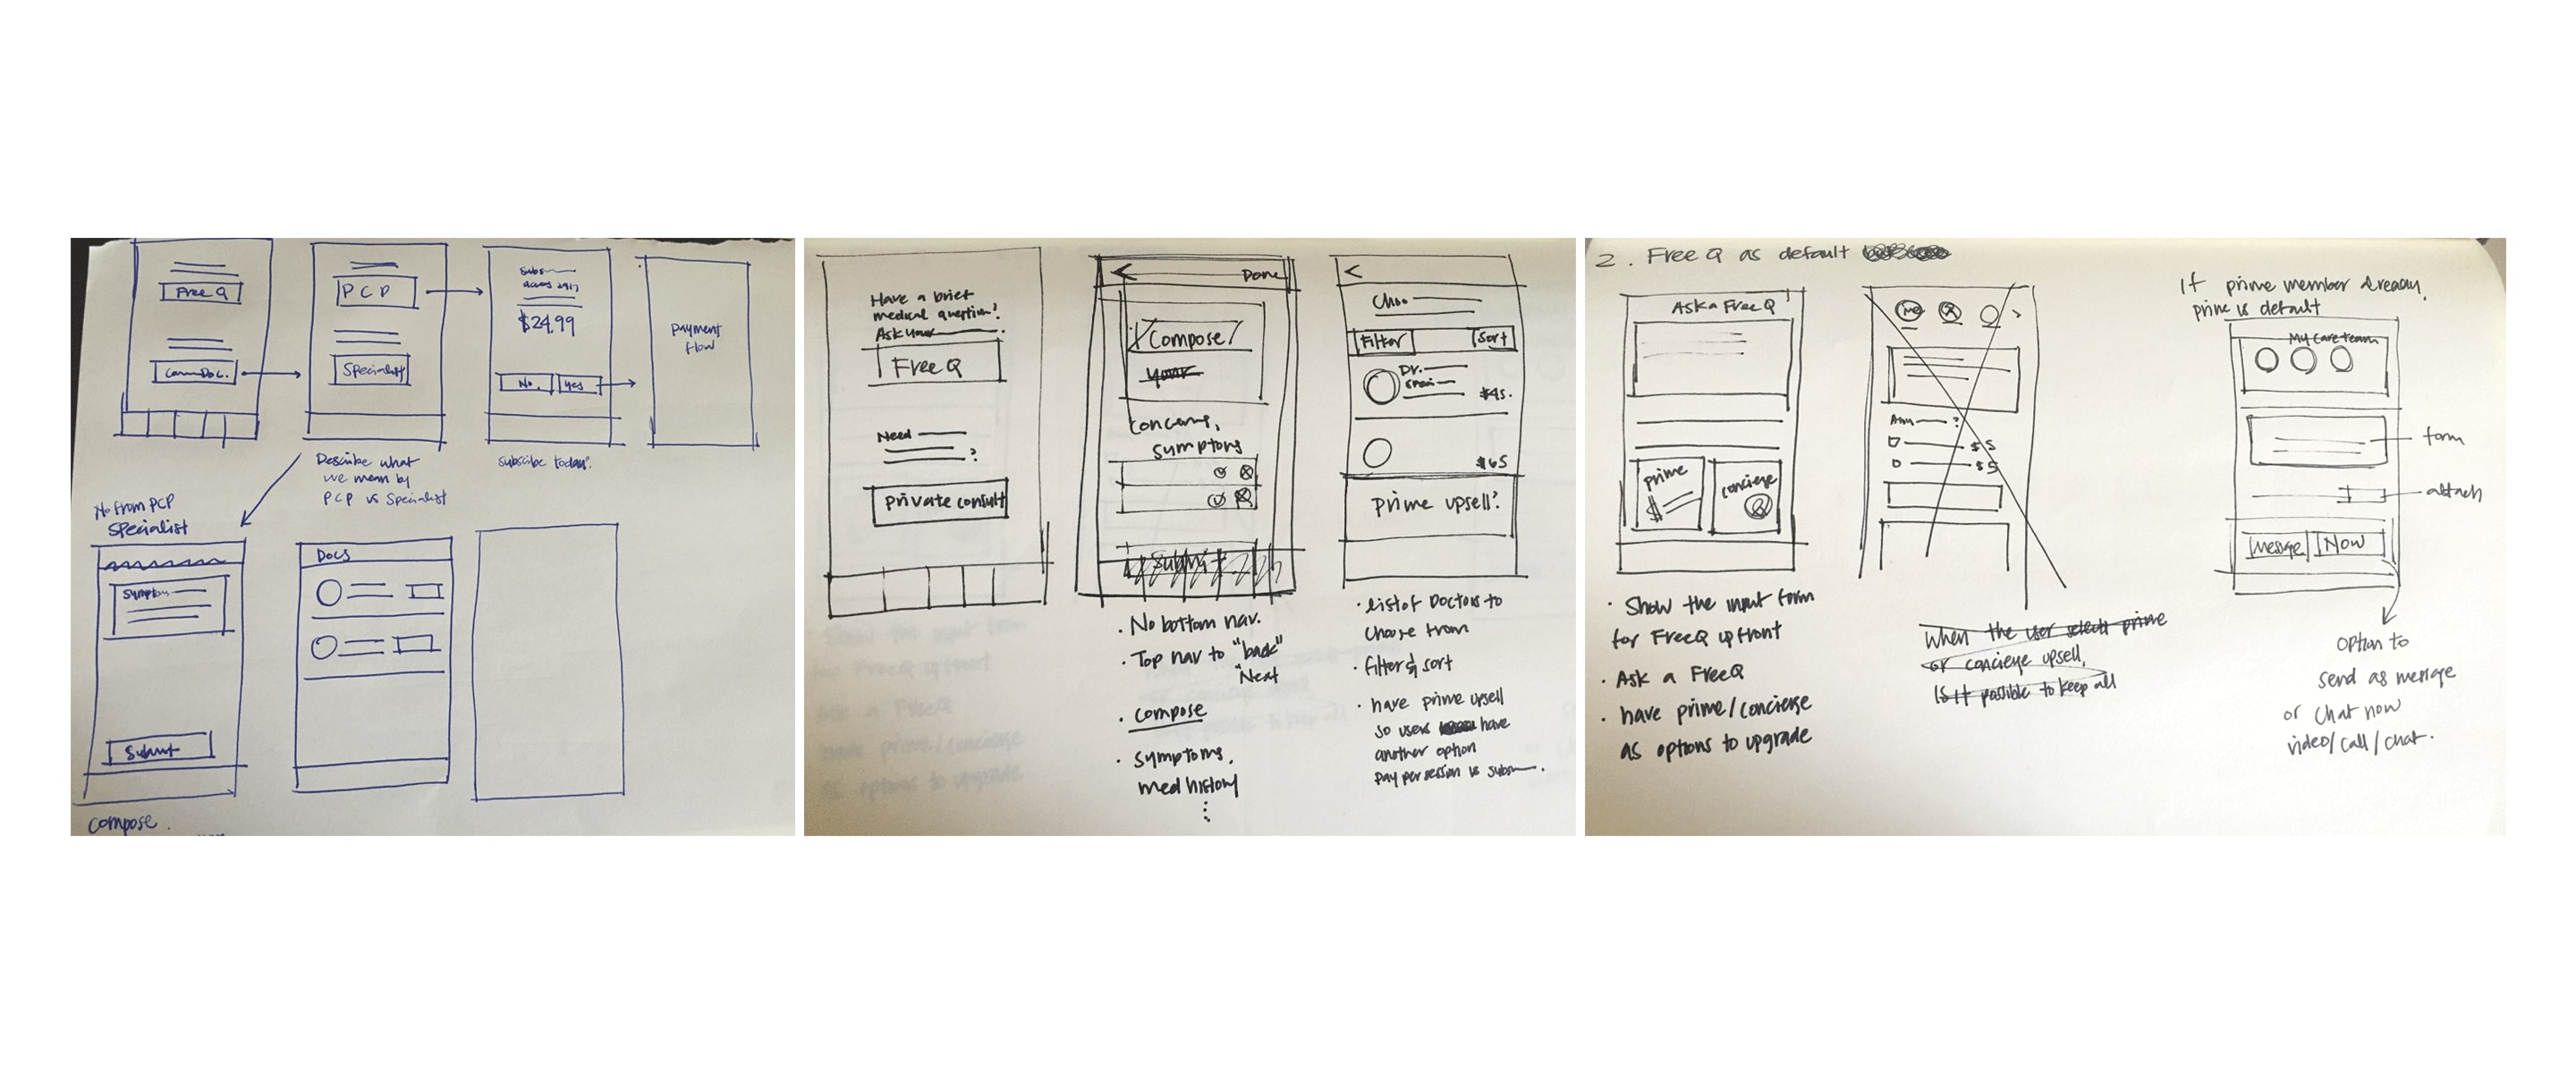 Free Q
PCP
Specialist
Subs
access 24/7
$24.99
No.
Yes
payment
flow
Describe what
we mean by
PCP vs Specialist
subscribe today!
No from PCP
Specialist
Symptoms
Submit
compose.
Docs
Have a brief
medical question?
Ask your
Free Q
Need
?
private consult
Done
Compose
your
concerns,
symptoms
Submit
• No bottom nav.
• Top nav to "back"
"Next
• compose
• symptoms,
med history
Choo
Filter
Sort
Dr.
Speci
$45.
$65
prime upsell?
• list of Doctors to
choose from
• filter & sort
• have prime upsell
so users have
another option
pay per session vs subs
2. Free Q as default
Ask a Free Q
prime
$
concierge
• Show the input form
for FreeQ upfront
• Ask a FreeQ
• have prime/concierge
as options to upgrade
Me
?
$5
$5
When the user selects prime
or concierge upsell,
Is it possible to keep all
If prime member already,
prime is default
My Care team
form
attach
Message
Now
option to
send as message
or chat now
video/call/chat.